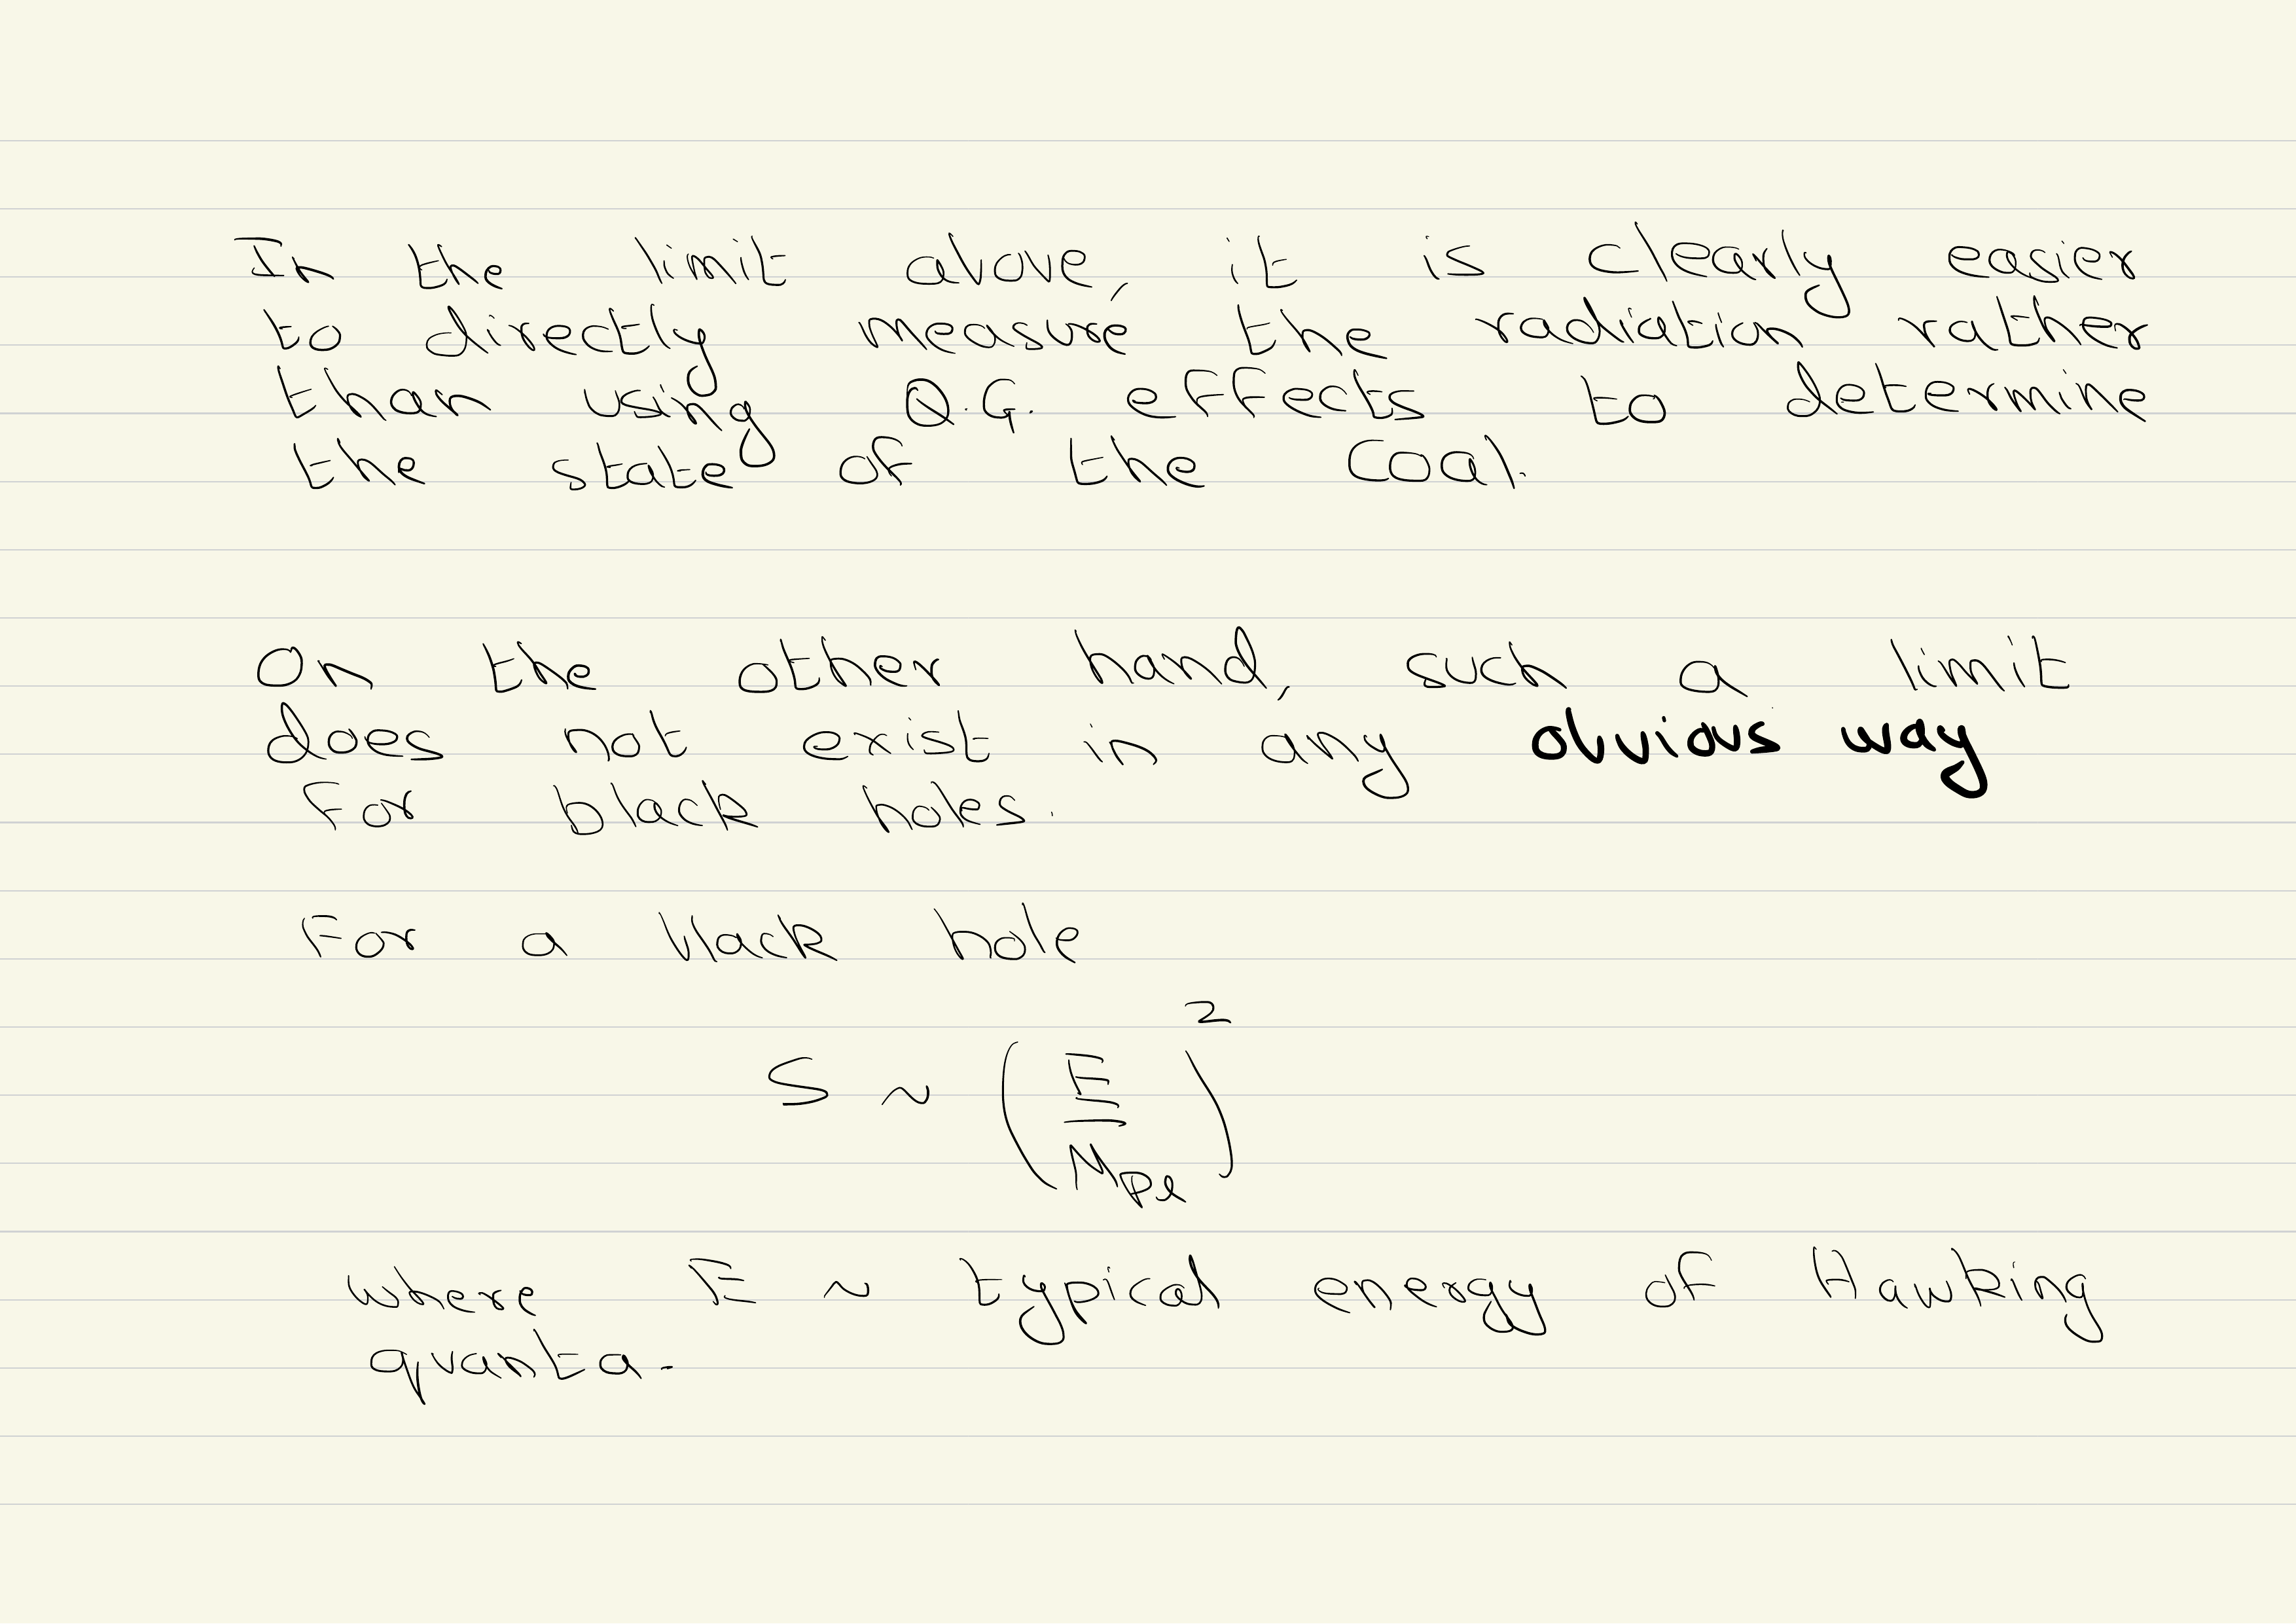 In the limit above, it is clearly easier
to directly measure the radiation rather
than using Q.G. effects to determine
the state of the coal.
On the other hand, such a limit
does not exist in any obvious way
for black holes.
For a black hole
S ~ (E/M_Pl)^2
where E ~ typical energy of Hawking
quanta.